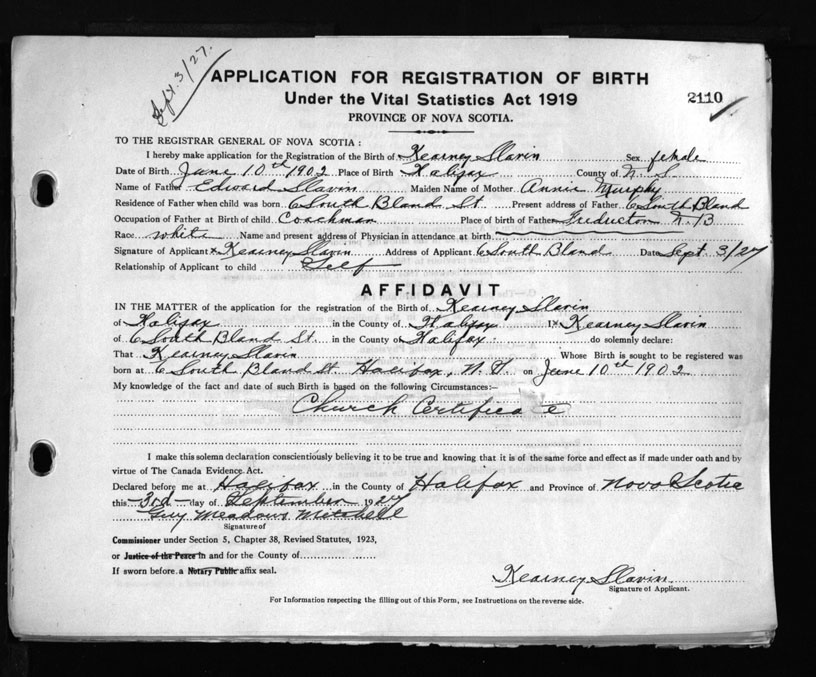 Sept. 3/27.
APPLICATION FOR REGISTRATION OF BIRTH
Under the Vital Statistics Act 1919
2110
PROVINCE OF NOVA SCOTIA.
TO THE REGISTRAR GENERAL OF NOVA SCOTIA:
I hereby make application for the Registration of the Birth of Kearney Slavin Sex female
Date of Birth June 10th 1902 Place of Birth Halifax County of N. S.
Name of Father Edward Slavin Maiden Name of Mother Annie Murphy
Residence of Father when child was born 6 South Bland St. Present address of Father 6 South Bland
Occupation of Father at Birth of child Coachman Place of birth of Father Fredericton N. B
Race white Name and present address of Physician in attendance at birth
Signature of Applicant Kearney Slavin Address of Applicant 6 South Bland Date Sept. 3/27
Relationship of Applicant to child Self
AFFIDAVIT
IN THE MATTER of the application for the registration of the Birth of Kearney Slavin
of Halifax in the County of Halifax I, Kearney Slavin
of 6 South Bland St. in the County of Halifax do solemnly declare:
That Kearney Slavin Whose Birth is sought to be registered was
born at 6 South Bland St. Halifax, N. S. on June 10th 1902
My knowledge of the fact and date of such Birth is based on the following Circumstances:—
Church Certificate
I make this solemn declaration conscientiously believing it to be true and knowing that it is of the same force and effect as if made under oath and by
virtue of The Canada Evidence Act.
Declared before me at Halifax in the County of Halifax and Province of Nova Scotia
this 3rd day of September 1927
Guy Meadows Mitchell
Signature of
Commissioner under Section 5, Chapter 38, Revised Statutes, 1923,
or Justice of the Peace in and for the County of
If sworn before a Notary Public affix seal.
Kearney Slavin
Signature of Applicant.
For Information respecting the filling out of this Form, see Instructions on the reverse side.